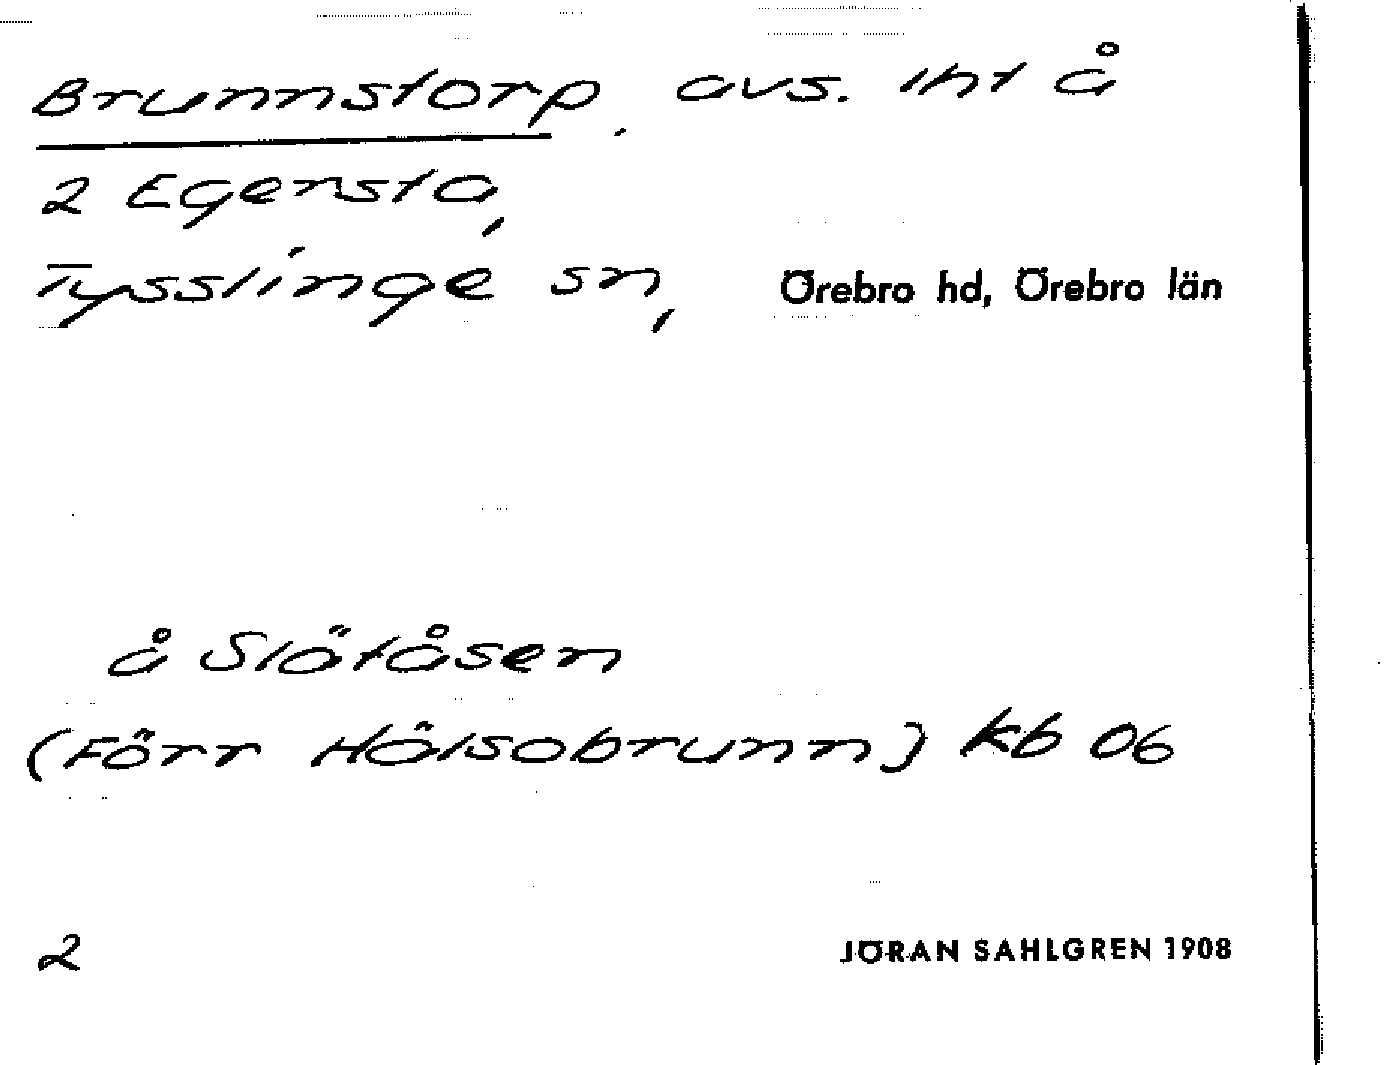 Brunnstorp, avs. lht å
2 Egersta,
Tysslinge sn, Örebro hd, Örebro län
å Slätåsen
(Förr Hälsobrunn) kb 06
2 JÖRAN SAHLGREN 1908